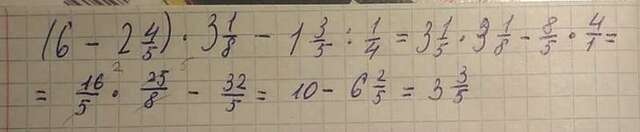 (6 - 2 4/5) · 3 1/8 - 1 3/5 : 1/4 = 3 1/5 · 3 1/8 - 8/5 · 4/1 =
= 16/5 · 25/8 - 32/5 = 10 - 6 2/5 = 3 3/5